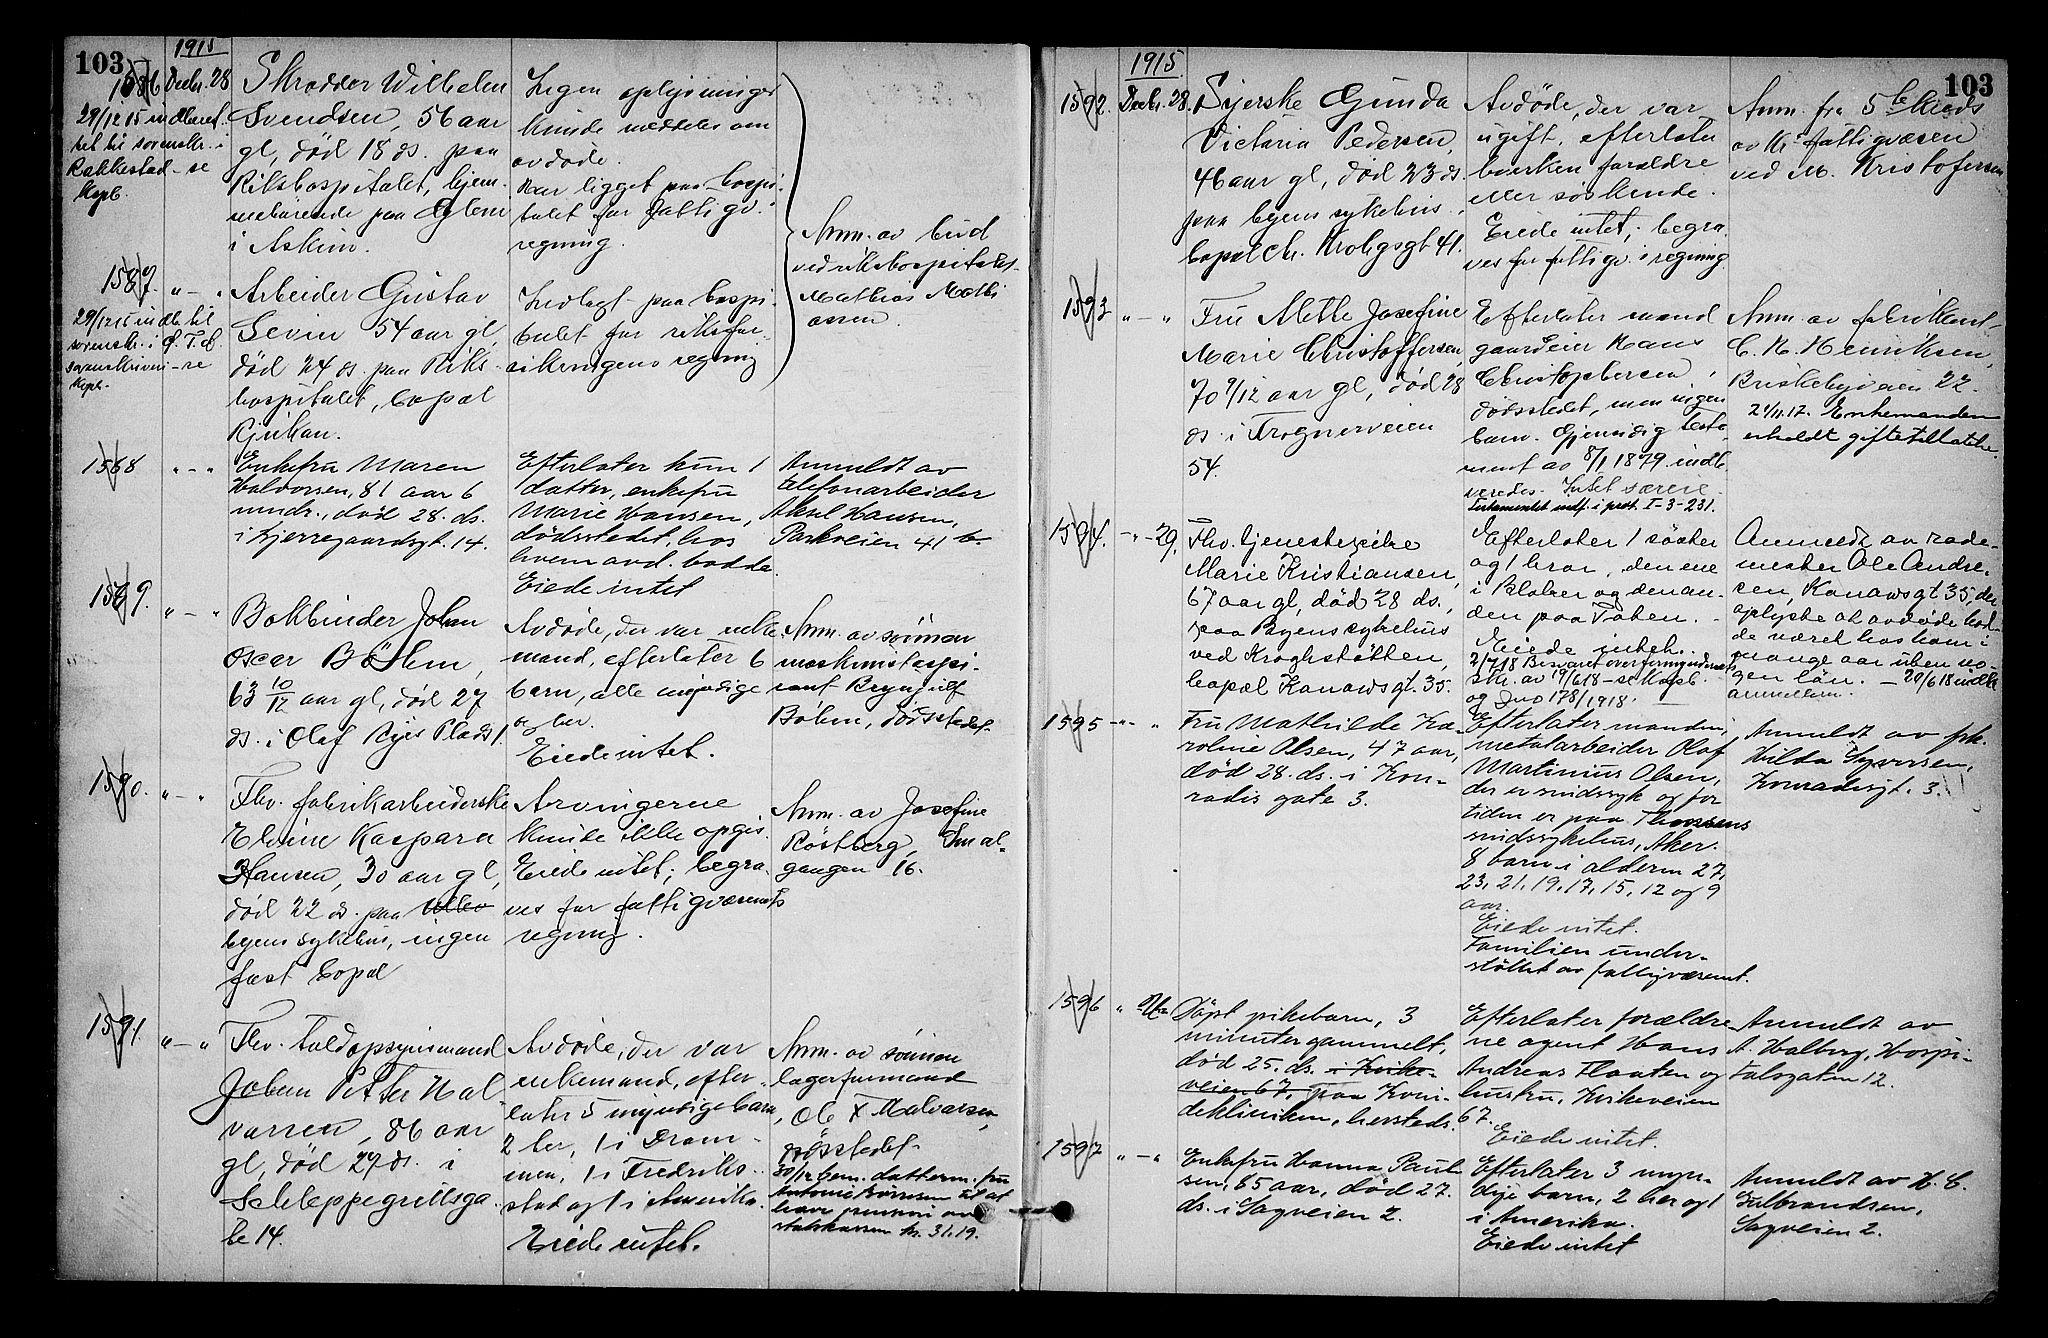 103
1915
1586 Decbr. 28
29/12 15 indberet-
tet til sorenskr. i
Rakkestad - se
Kopb.
Skrædder Wilhelm
Svendsen, 56 aar
gl., död 18 ds. paa
Rikshospitalet, hjem-
mehörende paa
i Askim.
Ingen oplysninger
kunde meddeles om
avdöde.
Har ligget paa hospi-
talet for fattigv.
regning.
Anm. av bud
ved rikshospitalet
Mathias Mathi
assen.
1587. " - "
29/12 15 indb. til
sorenskr. i
sorenskriveri - se
Kopb.
Arbeider Gustav
Levin 54 aar gl.,
död 24 ds. paa Riks-
hospitalet, bopæl
Rjukan.
Indlagt paa hospi-
talet for riksfor-
sikringens regning
1588 " - "
Enkefru Maren
Halvorsen, 81 aar 6
mndr., död 28. ds.
i Kjerregaardsgt. 14.
Efterlater kun 1
datter, enkefru
Marie Hansen,
dödsstedet, hos
hvem avd. bodde.
Eiede intet
Anmeldt av
telefonarbeider
Aksel Hansen,
Parkveien 41 b.
1589. " - "
Bokbinder Johan
Oscar Böhm,
63 10/12 aar gl., död 27
ds. i Olaf Ryes Plads 1.
Avdöde, der var enke-
mand, efterlater 6
barn, alle myndige
og her.
Eiede intet.
Anm. av sönnen
maskinistaspi-
rant Brynjulf
Böhm, dödsstedet.
1590. " - "
Fhv. fabrikarbeiderske
Elvine Kaspara
Hansen, 30 aar gl.,
död 22 ds. paa Ullev
byens sykehus, ingen
fast bopæl
Arvingerne
kunde ikke opgis.
Eiede intet; begra-
ves for fattigvæsenets
regning.
Anm. av Josefine
Röstberg, Smal-
gangen 16.
1591. " - "
Fhv. toldopsynsmand
Johan Petter Hal
varsen, 86 aar
gl., död 27 ds. i
Schleppegrellsga
te 14.
Avdöde, der var
enkemand, efter-
later 5 myndige barn,
2 her, 1 i Dram-
men, 1 i Fredrik-
stad og 1 i Amerika.
Eiede intet.
Anm. av sönnen
lagerformand
Ole Halvarsen,
dödsstedet.
30/12 bem. datteren, fru
Antonie at
have pension av
statskassen kr. 31.19.
103
1915.
1592. Decbr. 28.
Syerske Gunda
Victoria Pedersen,
46 aar gl., död 23 ds.
paa byens sykehus,
bopæl Chr. Krohgsgt 41.
Avdöde, der var
ugift, efterlater
hverken forældre
eller söskende.
Eiede intet; begra-
ves for fattigv. regning.
Anm. fra 5te Kreds
av Kr. fattigvæsen
ved M. Kristofersen
1593 " - "
Fru Mette Josefine
Marie Christoffersen,
70 9/12 aar gl., död 28
ds. i Frognerveien
54.
Efterlater mand
gaardeier Hans
Christophersen,
dödsstedet, men ingen
barn. Gjensidig testa-
ment av 8/1 1879 indle-
veredes. Intet særeie.
Testamentet indf. i prot. I-3-231.
Anm. av fabrikant
C. H. Henriksen,
Briskebyveien 22.
21/11.17. Enkemanden
erholdt giftetillatelse.
1594. " - 29.
Fhv. tjenestepike
Marie Kristiansen,
67 aar gl., död 28 ds.,
paa Byens sykehus
ved Krohgstötten,
bopæl Kanawsgt. 35.
Efterlater 1 söster
og 1 bror, den ene
i Blaker og den an-
den paa Toten.
Eiede intet.
2/7 18 Besvaret overformynderiets
skr. av 19/6 18 - se Kopb.
og Jno 178/1918.
Anmeldt av rode-
mester Ole Andre-
sen, Kanawsgt 35, der
oplyste at avdöde had-
de været hos ham i
mange aar uten no-
gen lön. - 20/6 18 indk
anmelderen.
1595 " - "
Fru Mathilde Ka-
roline Olsen, 47 aar,
död 28. ds. i Kon-
radis gate 3.
Efterlater manden,
metalarbeider Olaf
Martinius Olsen,
der er sindssyk og for
tiden er paa
sindssykehus, Aker.
8 barn i alderen 27,
23, 21, 19, 17, 15, 12 og 9
aar.
Eiede intet.
Familien under-
stöttet av fattigvæsenet.
Anmeldt av frk.
Hilda Syversen,
Konradisgt. 3.
1596 " - "
Döpt pikebarn, 3
minuter gammelt,
död 25. ds. i Kirke-
veien 67, paa Kvin-
deklinikken, hersteds.
Efterlater forældre-
ne agent Hans
Andreas Flaaten og
hustru, Kirkeveien
67.
Eiede intet.
Anmeldt av
A. Walberg, Hospi-
talsgaten 12.
1597 " - "
Enkefru Hanna Paul-
sen, 65 aar, död 27.
ds. i Sagveien 2.
Efterlater 3 myn-
dige barn, 2 her og 1
i Amerika.
Eiede intet
Anmeldt av H. C.
Gulbrandsen,
Sagveien 2.